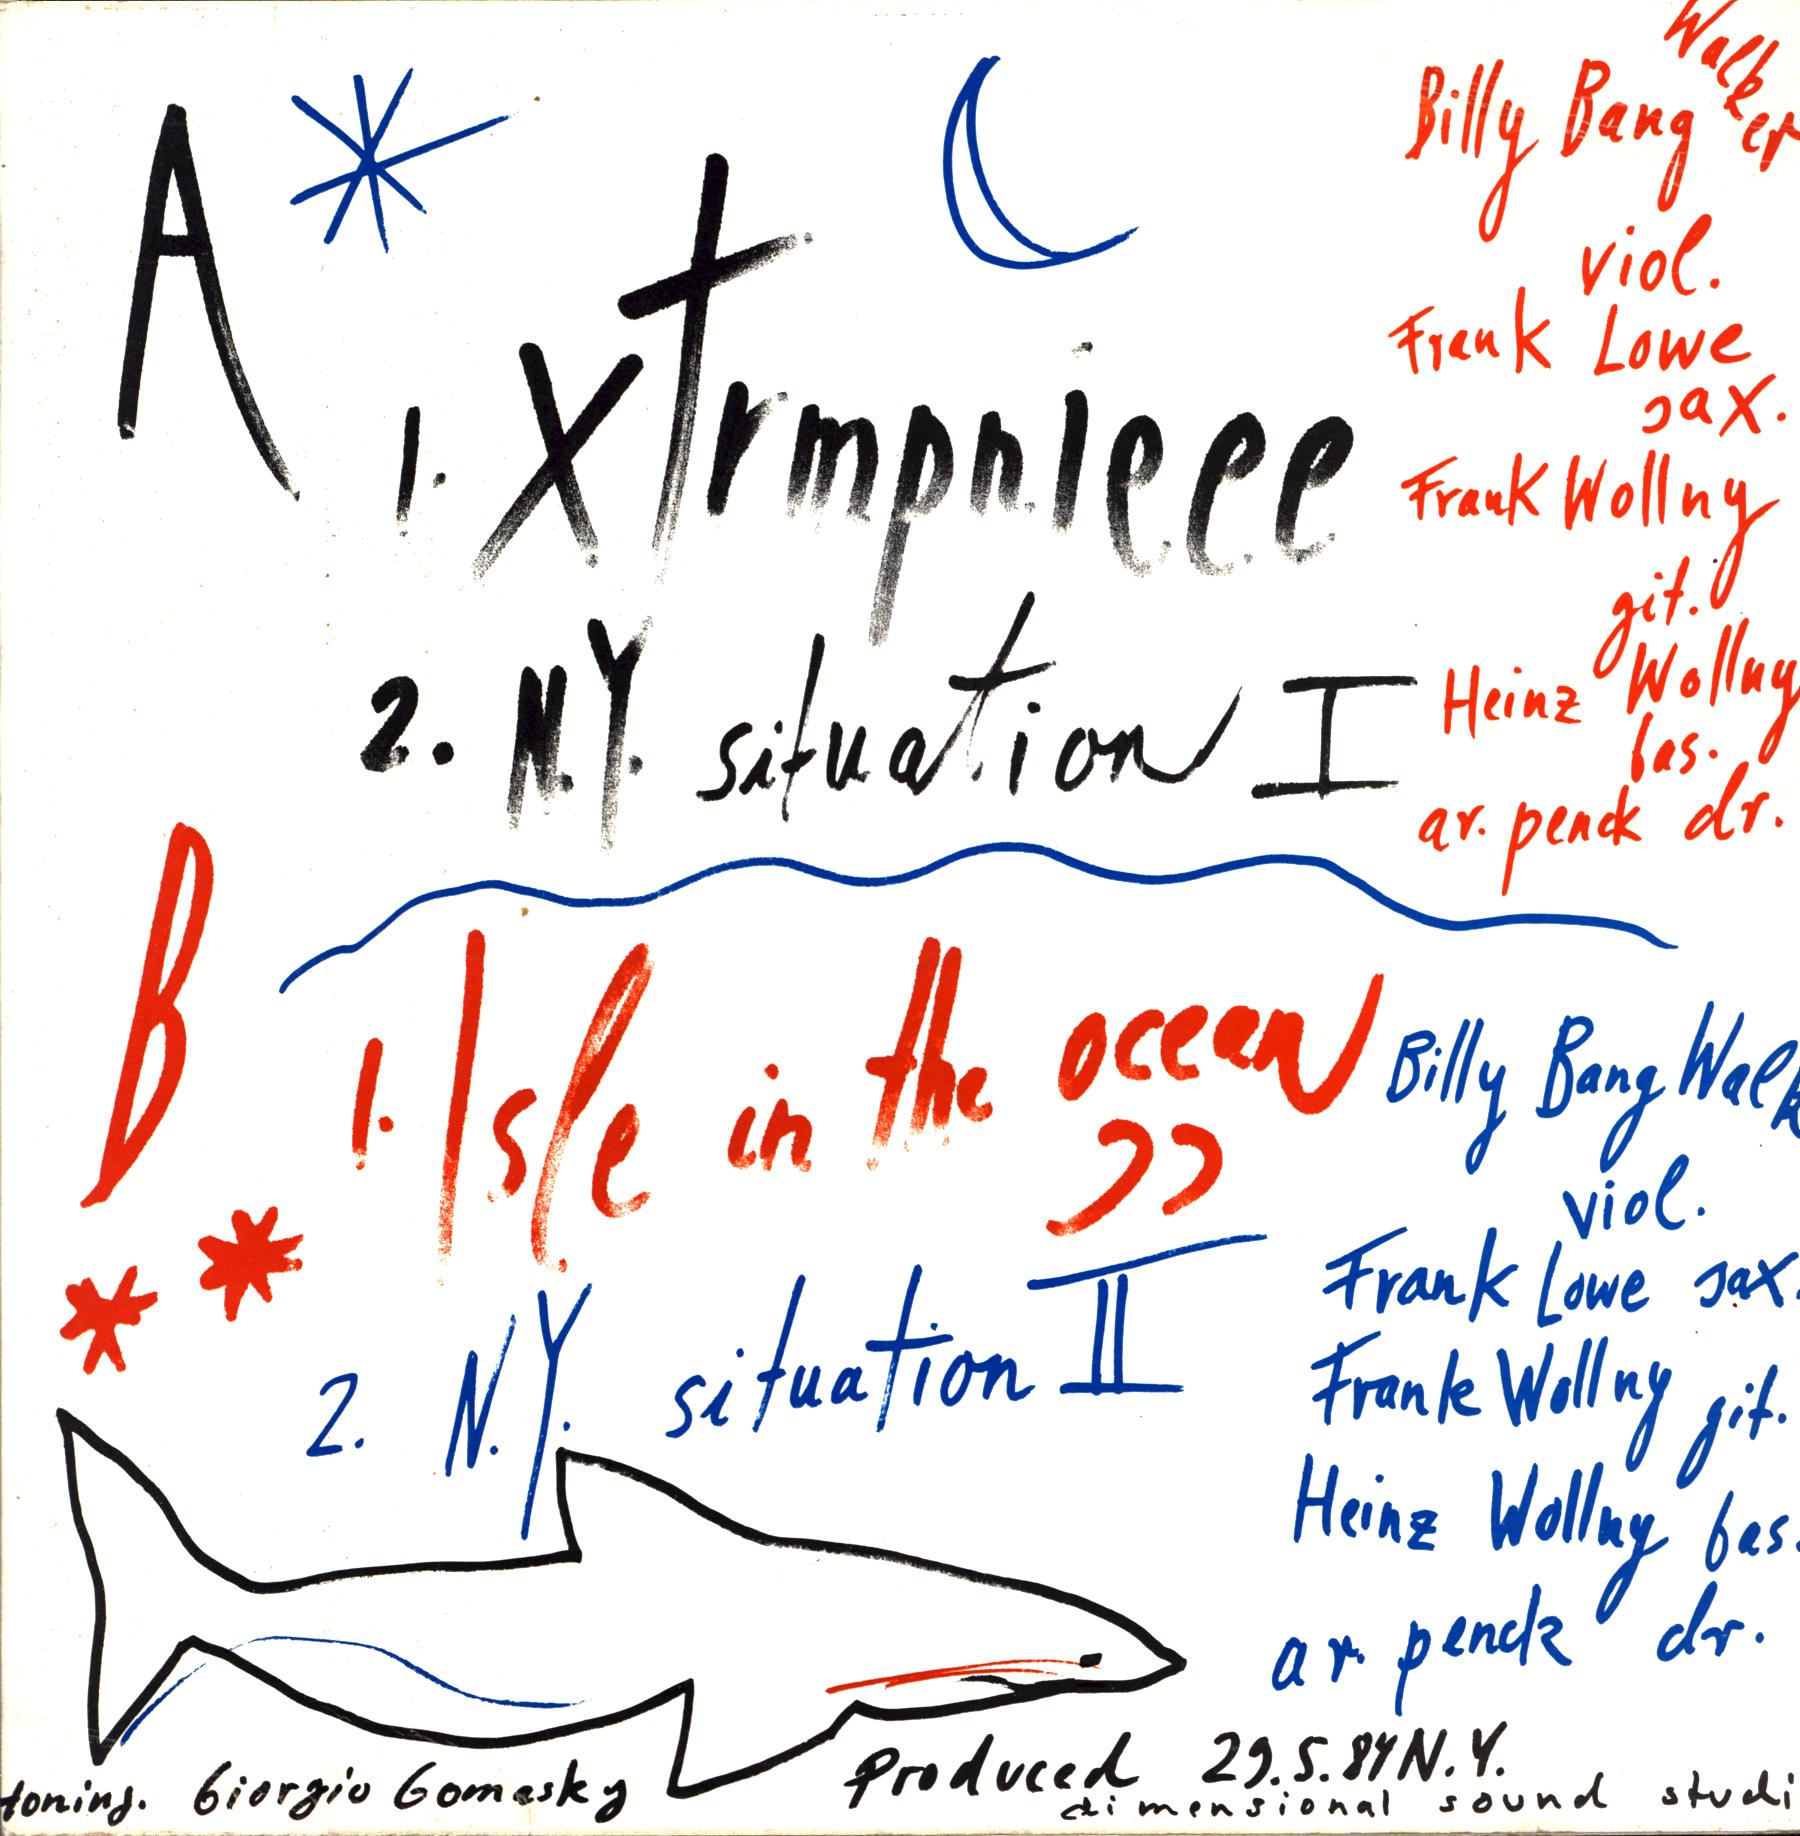 A
1. xtrmpnieee
2. N.Y. situation I
Billy Bang Walker
viol.
Frank Lowe
sax.
Frank Wollny
git.
Heinz Wollny
bas.
ar. penck dr.
B
1. Isle in the ocean
2. N.Y. situation II
Billy Bang Walk
viol.
Frank Lowe sax.
Frank Wollny git.
Heinz Wollny bas.
ar. penck dr.
toning. Giorgio Gomesky
Produced 29.5.84 N.Y.
dimensional sound studi